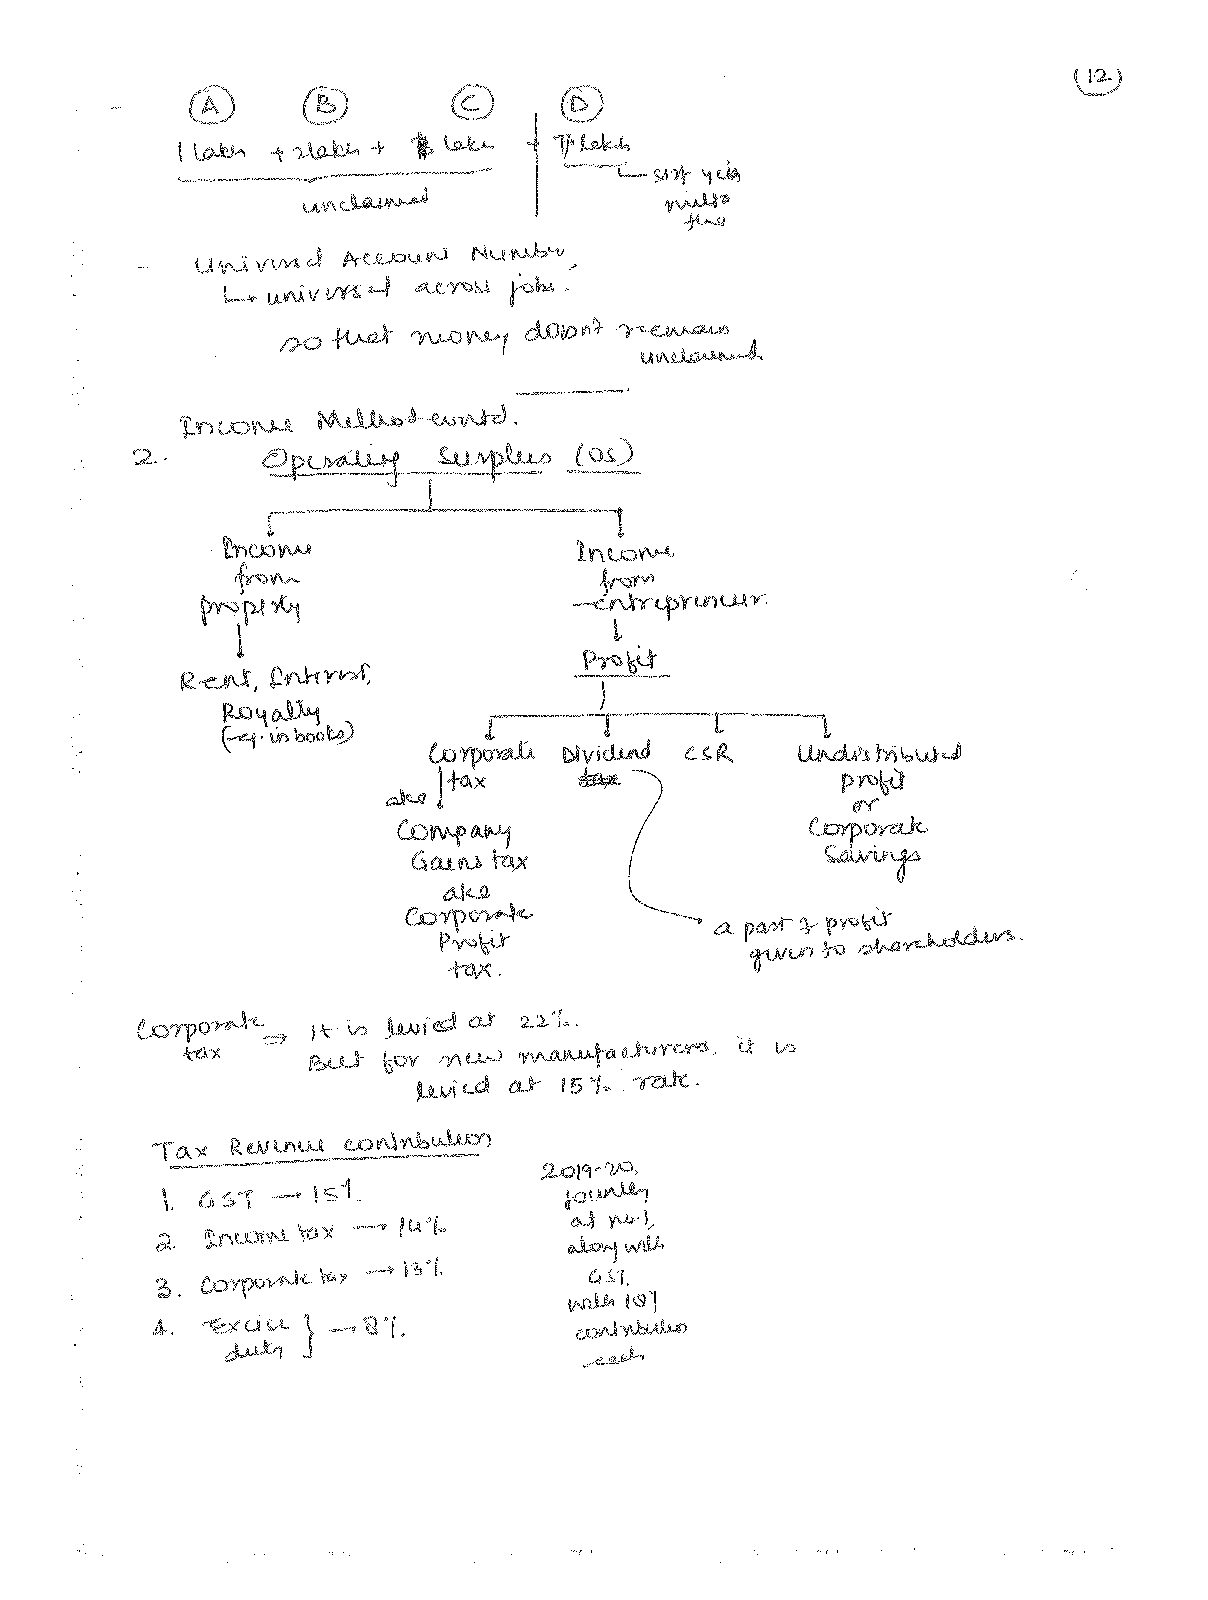 (12)
A B C D
1 lakh + 2 lakh + lakh + lakh
unclaimed
Universal Account Number,
↳ universal across jobs.
so that money doesn't remain
unclaimed
Income Method contd.
2. Operating Surplus (OS)
Income Income
from from
property entrepreneur.
Profit
Rent, Interest,
Royalty
(eg. in books)
Corporate Dividend CSR Undistributed
tax tax profit
aka or
Company Corporate
Gains tax Savings
aka
Corporate
Profit
tax.
a part of profit
given to shareholders.
Corporate tax ⇒ It is levied at 22%.
But for new manufacturers, it is
levied at 15% rate.
Tax Revenue contribution
1. GST → 15%
2. Income tax → 14%
3. Corporate tax → 13%
4. Excise duty } → 8%.
2019-20,
jointly
at no.1,
along with
GST,
with
contribution
each